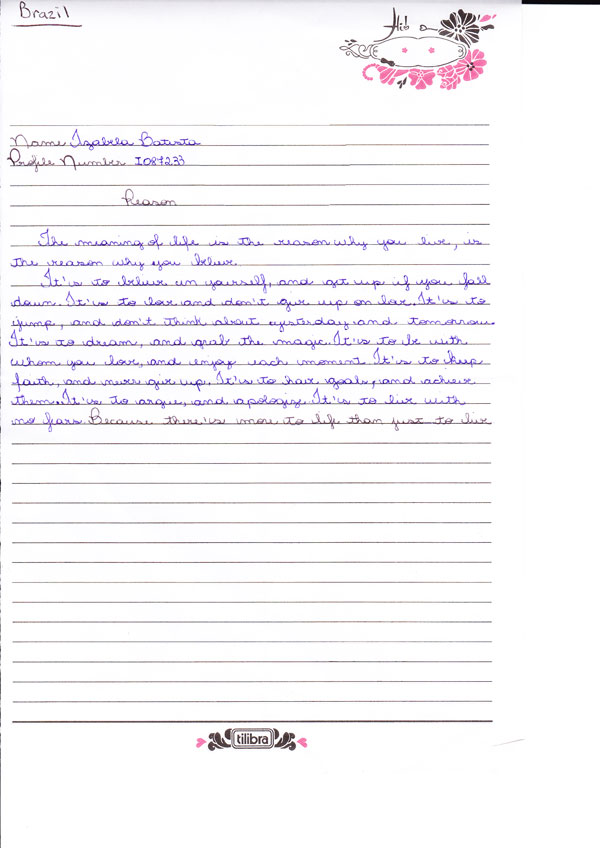 Brazil
Name Izabela Batista
Profile Number I087233
Reason
The meaning of life is the reason why you live, is
the reason why you believe.
It's to believe in yourself, and get up if you fall
down. It's to love and don't give up on love. It's to
jump, and don't think about yesterday and tomorrow.
It's to dream, and grab the magic. It's to be with
whom you love, and enjoy each moment. It's to keep
faith, and never give up. It's to have goals, and achieve
them. It's to argue, and apologize. It's to live with
no fears. Because there's more to life than just to live
tilibra